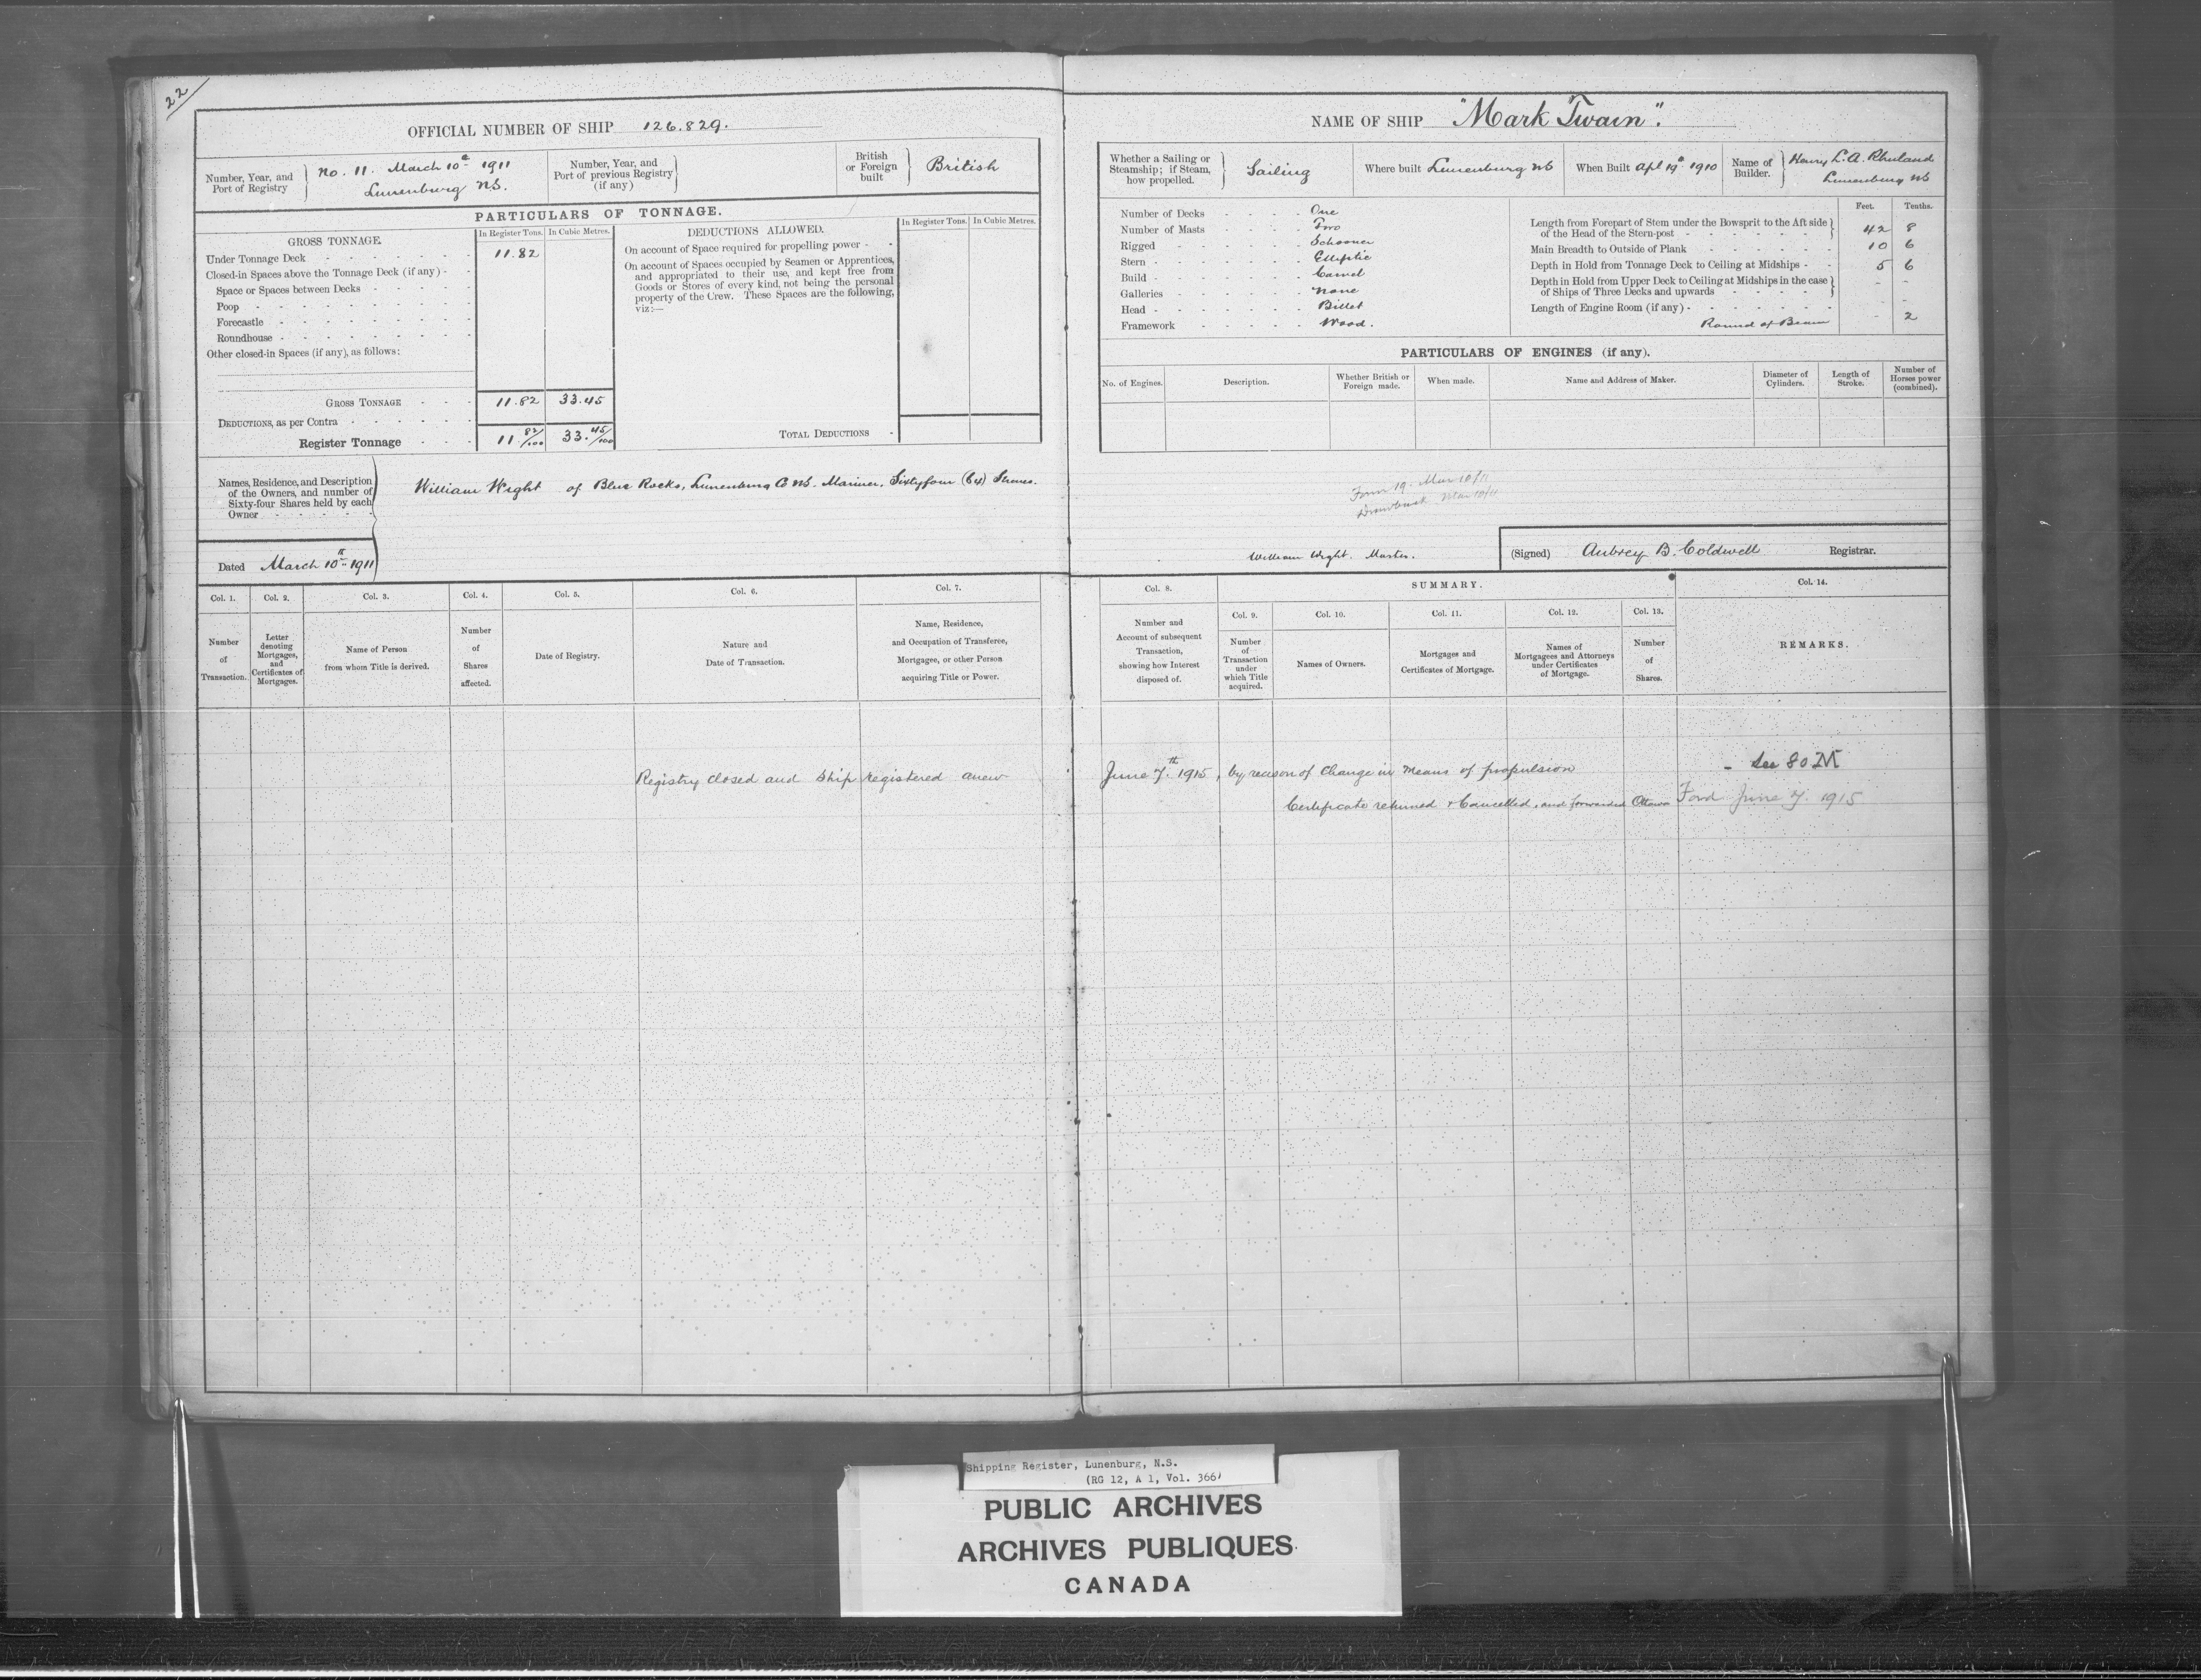 22
OFFICIAL NUMBER OF SHIP 126.829.
Number, Year, and Port of Registry
No. 11. March 10th 1911
Lunenburg NS.
Number, Year, and Port of previous Registry (if any)
British or Foreign built
British
PARTICULARS OF TONNAGE.
GROSS TONNAGE.
In Register Tons. In Cubic Metres.
Under Tonnage Deck 11.82
Closed-in Spaces above the Tonnage Deck (if any)
Space or Spaces between Decks
Poop
Forecastle
Roundhouse
Other closed-in Spaces (if any), as follows:
GROSS TONNAGE 11.82 33.45
DEDUCTIONS, as per Contra
Register Tonnage 11 82/100 33. 45/100
DEDUCTIONS ALLOWED.
In Register Tons. In Cubic Metres.
On account of Space required for propelling power
On account of Spaces occupied by Seamen or Apprentices,
and appropriated to their use, and kept free from
Goods or Stores of every kind, not being the personal
property of the Crew. These Spaces are the following,
viz:—
TOTAL DEDUCTIONS
Names, Residence, and Description
of the Owners, and number of
Sixty-four Shares held by each
Owner
William Wight of Blue Rocks, Lunenburg Co NS. Mariner, Sixtyfour (64) Shares.
Dated March 10th 1911
Col. 1. Col. 2. Col. 3. Col. 4. Col. 5. Col. 6. Col. 7.
Number of Transaction.
Letter denoting Mortgages, and Certificates of Mortgages.
Name of Person from whom Title is derived.
Number of Shares affected.
Date of Registry.
Nature and Date of Transaction.
Name, Residence, and Occupation of Transferee, Mortgagee, or other Person acquiring Title or Power.
NAME OF SHIP "Mark Twain".
Whether a Sailing or Steamship; if Steam, how propelled.
Sailing
Where built Lunenburg NS
When Built Apl 19th 1910
Name of Builder.
Henry L. A. Rhuland
Lunenburg NS
Number of Decks One
Number of Masts Two
Rigged Schooner
Stern Elliptic
Build Carvel
Galleries None
Head Billet
Framework Wood.
Feet. Tenths.
Length from Forepart of Stem under the Bowsprit to the Aft side
of the Head of the Stern-post 42 8
Main Breadth to Outside of Plank 10 6
Depth in Hold from Tonnage Deck to Ceiling at Midships 5 6
Depth in Hold from Upper Deck to Ceiling at Midships in the case
of Ships of Three Decks and upwards - -
Length of Engine Room (if any) -
Round of Beam - 2
PARTICULARS OF ENGINES (if any).
No. of Engines. Description. Whether British or Foreign made. When made. Name and Address of Maker. Diameter of Cylinders. Length of Stroke. Number of Horses power (combined).
Form 19. Mar 10/11
Drawback Mar 10/11
William Wight. Master.
(Signed) Aubrey B. Coldwell Registrar.
Col. 8. SUMMARY. Col. 14.
Col. 9. Col. 10. Col. 11. Col. 12. Col. 13.
Number and Account of subsequent Transaction, showing how Interest disposed of.
Number of Transaction under which Title acquired.
Names of Owners.
Mortgages and Certificates of Mortgage.
Names of Mortgagees and Attorneys under Certificates of Mortgage.
Number of Shares.
REMARKS.
Registry closed and Ship registered anew June 7th 1915, by reason of Change in Means of propulsion - See 80
Certificate returned & Cancelled, and forwarded Ottawa Ford June 7. 1915
Shipping Register, Lunenburg, N.S.
(RG 12, A 1, Vol. 366)
PUBLIC ARCHIVES
ARCHIVES PUBLIQUES
CANADA